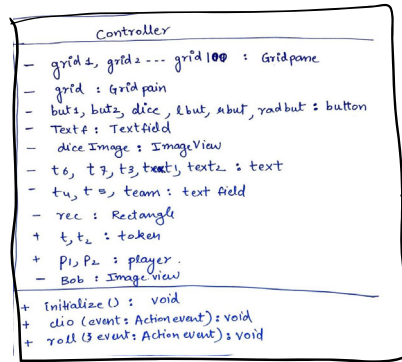 Controller
- grid1, grid2 --- grid100 : Gridpane
- grid : Grid pain
- but1, but2, dice, lbut, rbut, radbut : button
- Textf : Textfield
- dice Image : ImageView
- t6, t7, t3, text1, text2 : text
- t4, t5, team : text field
- rec : Rectangle
+ t, t2 : token
+ P1, P2 : player.
- Bob : Image view
+ initialize () : void
+ clio (event : Action event) : void
+ roll (3 event : Action event) : void